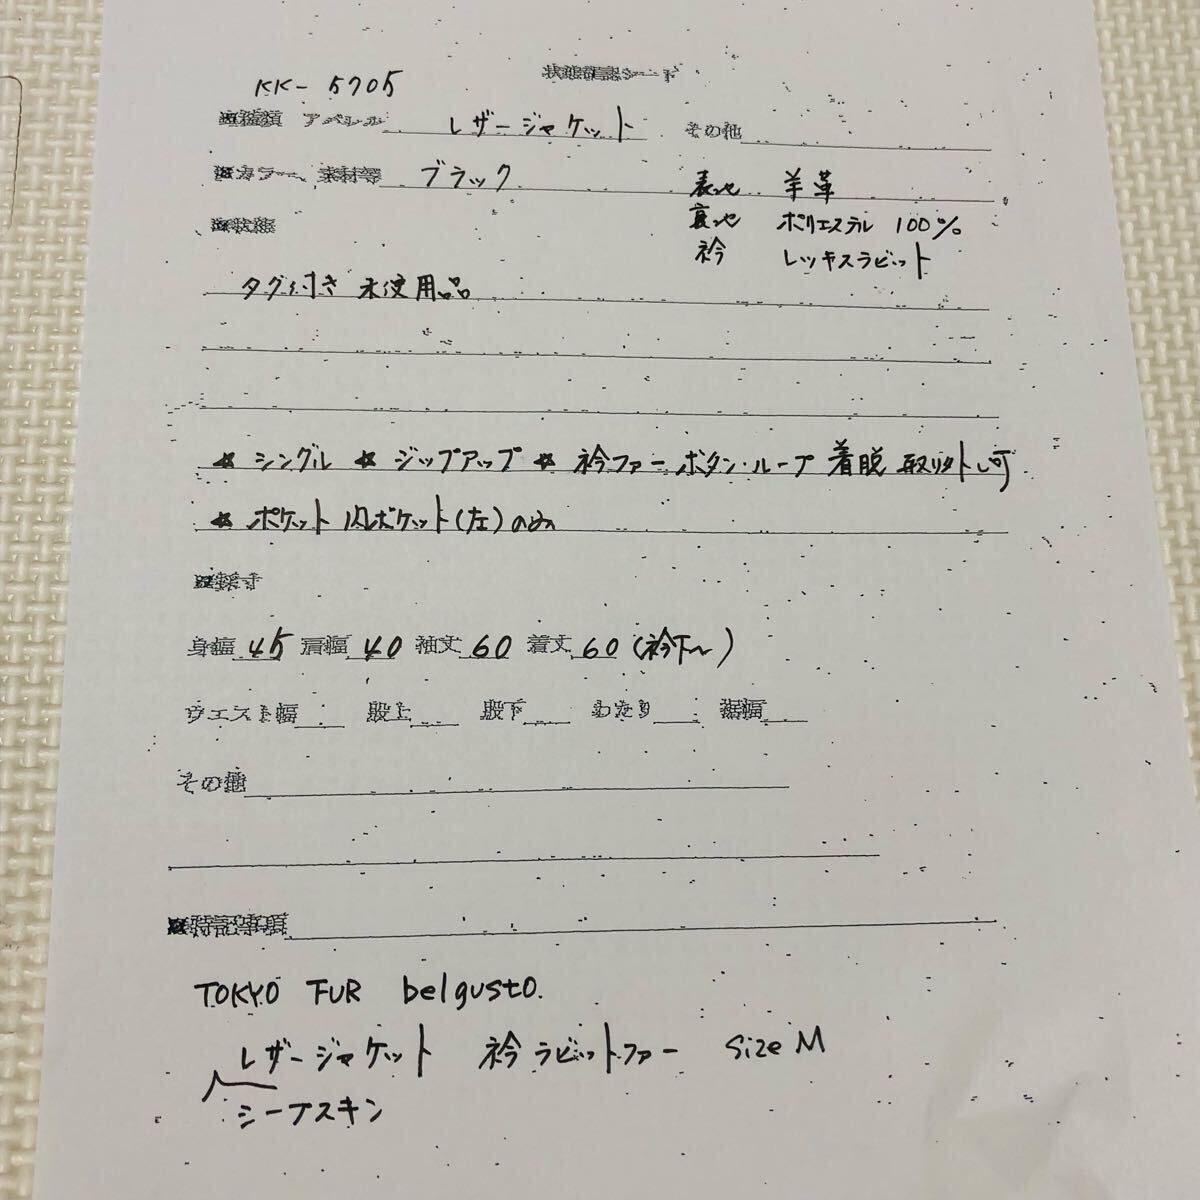 状態確認シート
KK-5705
■種類 アパレル レザージャケット その他
■カラー、素材等 ブラック 表地 羊革
■状態 裏地 ポリエステル 100%
衿 レッキスラビット
タグ付き 未使用品
☆ シングル ☆ ジップアップ ☆ 衿ファー ボタン・ループ 着脱 取り外し可
☆ ポケット 内ポケット(左)のみ
■採寸
身幅 45 肩幅 40 袖丈 60 着丈 60 (衿下〜)
ウエスト幅 股上 股下 わたり 裾幅
その他
■特記事項
TOKYO FUR belgusto.
レザージャケット 衿ラビットファー size M
シープスキン